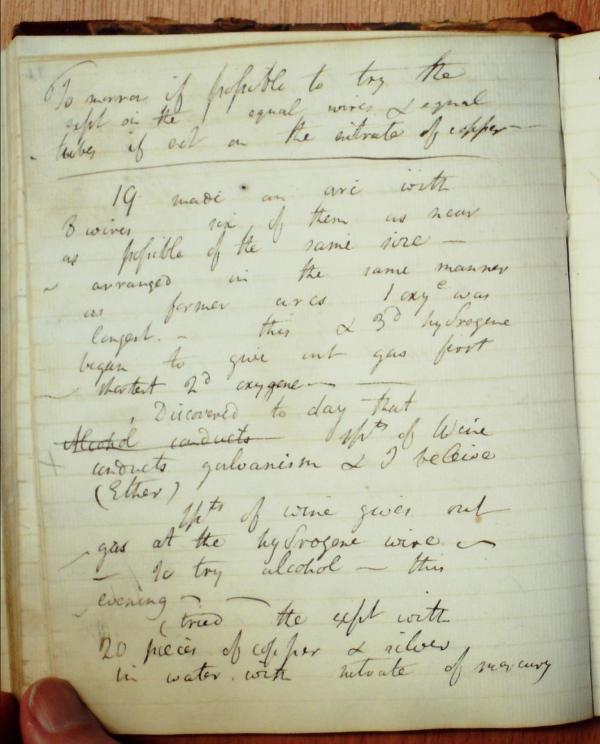 To morrow if possible to try the
expt on the equal wires & equal
tubes if act on the nitrate of copper —
19 made an arc with
8 wires six of them as near
as possible of the same size —
arranged in the same manner
as former arcs 1 oxyᵉ was
longest. — this & 3ᵈ hydrogene
began to give out gas first
shortest 2ᵈ oxygene —
Discovered to day that
Alcohol conducts spᵗˢ of Wine
conducts galvanism & I beleive
(Ether)
spᵗˢ of wine gives out
gas at the hydrogene wire —
— to try alcohol — this
evening — —
(tried the expt with
20 pieces of copper & silver
in water with nitrate of mercury